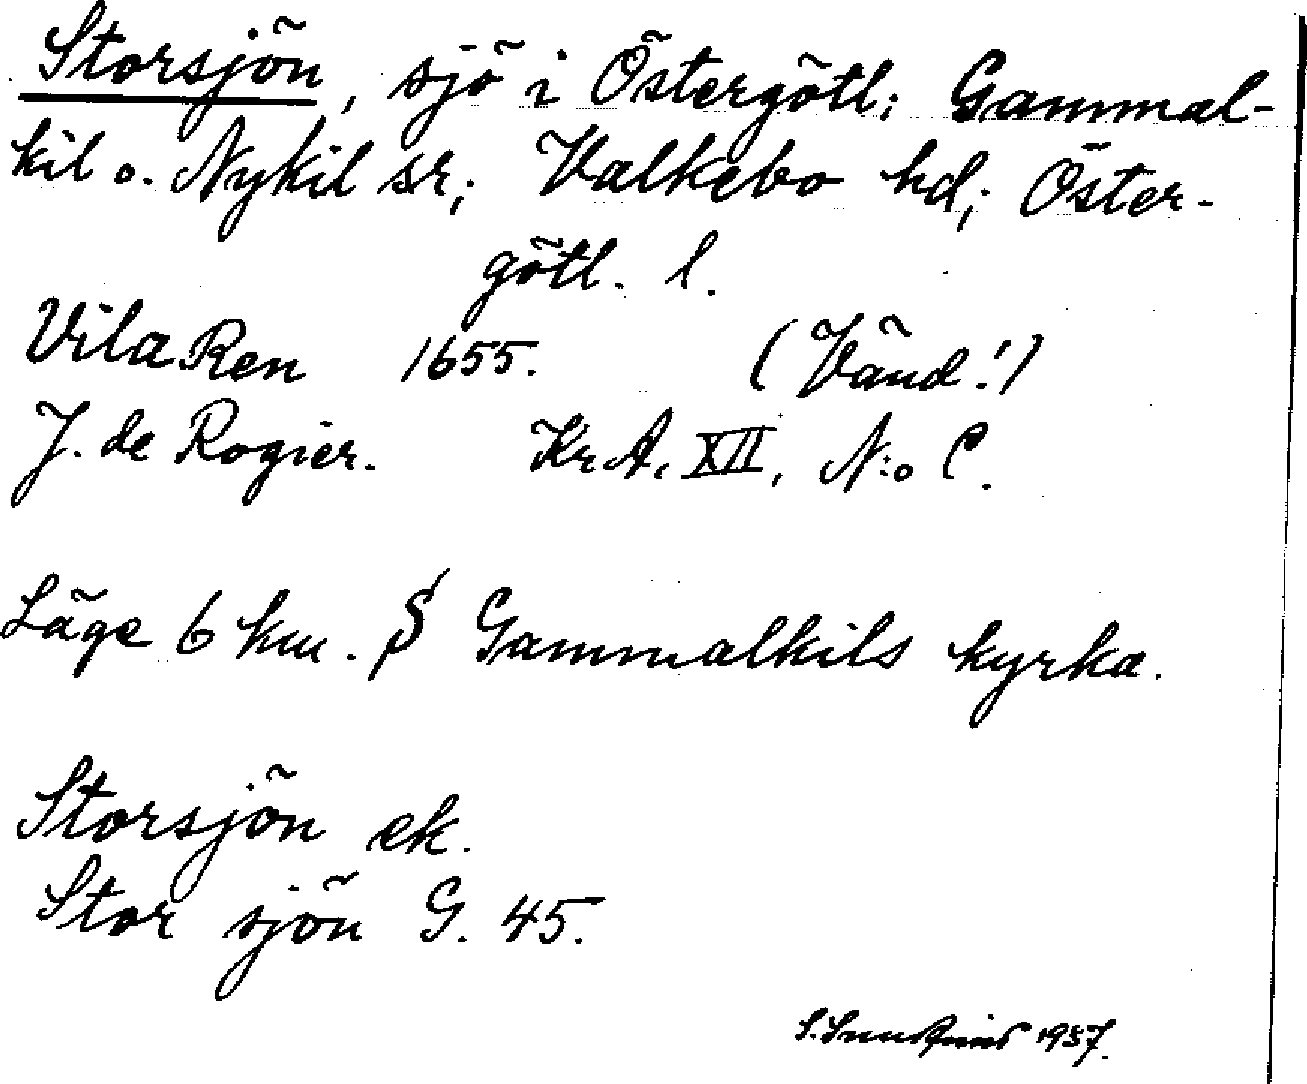 Storsjön, sjö i Östergötl; Gammal-
kil o. Nykil sr; Valkebo hd; Öster-
götl. l.
Vila Ren 1655. (Vänd!)
J. de Rogier. Kr A. XII, N:o C.
Läge 6 km. S Gammalkils kyrka.
Storsjön ek.
Stor sjön G. 45.
S. 1937.